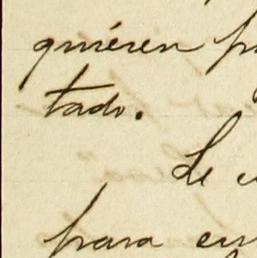 quiéren
tado.
Le
para en